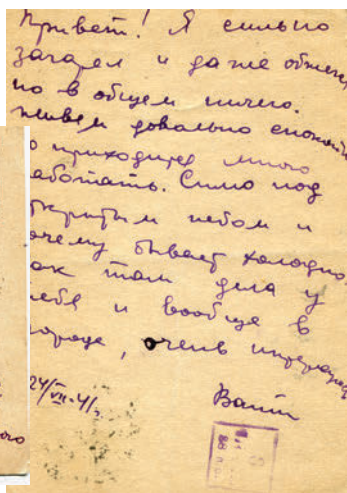 Привет! Я сильно
загарел и даже обжегся,
но в общем ничего.
живем довально спокойно
о приходится много
аботать. Сплю под
ткрытым небом и
очему бывает холодно.
ак там дела у
ебя и вообще в
ороде, очень интересует
24/VII-41г.